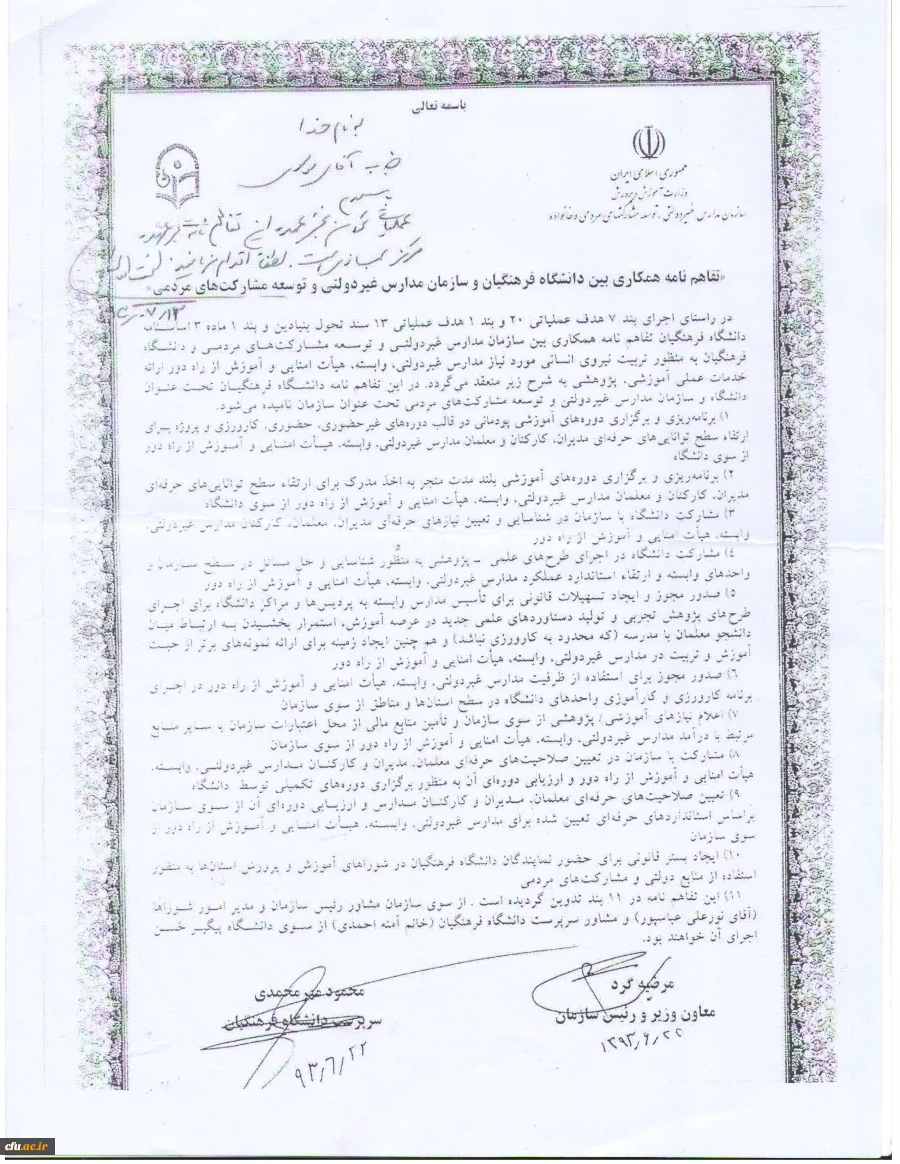 باسمه تعالی
بنام خدا
جناب آقای
جمهوری اسلامی ایران
وزارت آموزش و پرورش
سازمان مدارس غیردولتی، توسعه مشارکتهای مردمی و خانواده
باسلام
مرکز است. لطفاً اقدام فرمائید.
«تفاهم نامه همکاری بین دانشگاه فرهنگیان و سازمان مدارس غیردولتی و توسعه مشارکت‌های مردمی»
در راستای اجرای بند ۷ هدف عملیاتی ۲۰ و بند ۱ هدف عملیاتی ۱۳ سند تحول بنیادین و بند ۱ ماده ۳ اساسنامه
دانشگاه فرهنگیان تفاهم نامه همکاری بین سازمان مدارس غیردولتی و توسعه مشارکت‌های مردمی و دانشگاه
فرهنگیان به منظور تربیت نیروی انسانی مورد نیاز مدارس غیردولتی، وابسته، هیأت امنایی و آموزش از راه دور ارائه
خدمات عملی آموزشی، پژوهشی به شرح زیر منعقد می‌گردد. در این تفاهم نامه دانشگاه فرهنگیان تحت عنوان
دانشگاه و سازمان مدارس غیردولتی و توسعه مشارکت‌های مردمی تحت عنوان سازمان نامیده می‌شود.
۱) برنامه‌ریزی و برگزاری دوره‌های آموزشی پودمانی در قالب دوره‌های غیرحضوری، حضوری، کارورزی و پروژه برای
ارتقاء سطح توانایی‌های حرفه‌ای مدیران، کارکنان و معلمان مدارس غیردولتی، وابسته، هیأت امنایی و آموزش از راه دور
از سوی دانشگاه
۲) برنامه‌ریزی و برگزاری دوره‌های آموزشی بلند مدت منجر به اخذ مدرک برای ارتقاء سطح توانایی‌های حرفه‌ای
مدیران، کارکنان و معلمان مدارس غیردولتی، وابسته، هیأت امنایی و آموزش از راه دور از سوی دانشگاه
۳) مشارکت دانشگاه با سازمان در شناسایی و تعیین نیازهای حرفه‌ای مدیران، معلمان، کارکنان مدارس غیردولتی،
وابسته، هیأت امنایی و آموزش از راه دور
۴) مشارکت دانشگاه در اجرای طرح‌های علمی - پژوهشی به منظور شناسایی و حل مسائل در سطح سازمان و
واحدهای وابسته و ارتقاء استاندارد عملکرد مدارس غیردولتی، وابسته، هیأت امنایی و آموزش از راه دور
۵) صدور مجوز و ایجاد تسهیلات قانونی برای تأسیس مدارس وابسته به پردیس‌ها و مراکز دانشگاه برای اجرای
طرح‌های پژوهش تجربی و تولید دستاوردهای علمی جدید در عرصه آموزش، استمرار بخشیدن به ارتباط میان
دانشجو معلمان با مدرسه (که محدود به کارورزی نباشد) و هم چنین ایجاد زمینه برای ارائه نمونه‌های برتر از حیث
آموزش و تربیت در مدارس غیردولتی، وابسته، هیأت امنایی و آموزش از راه دور
۶) صدور مجوز برای استفاده از ظرفیت مدارس غیردولتی، وابسته، هیأت امنایی و آموزش از راه دور در اجرای
برنامه کارورزی و کارآموزی واحدهای دانشگاه در سطح استان‌ها و مناطق از سوی سازمان
۷) اعلام نیازهای آموزشی/ پژوهشی از سوی سازمان و تأمین منابع مالی از محل اعتبارات سازمان یا سایر منابع
مرتبط با درآمد مدارس غیردولتی، وابسته، هیأت امنایی و آموزش از راه دور از سوی سازمان
۸) مشارکت با سازمان در تعیین صلاحیت‌های حرفه‌ای معلمان، مدیران و کارکنان مدارس غیردولتی، وابسته،
هیأت امنایی و آموزش از راه دور و ارزیابی دوره‌ای آن به منظور برگزاری دوره‌های تکمیلی توسط دانشگاه
۹) تعیین صلاحیت‌های حرفه‌ای معلمان، مدیران و کارکنان مدارس و ارزیابی دوره‌ای آن از سوی سازمان
براساس استانداردهای حرفه‌ای تعیین شده برای مدارس غیردولتی، وابسته، هیأت امنایی و آموزش از راه دور از
سوی سازمان
۱۰) ایجاد بستر قانونی برای حضور نمایندگان دانشگاه فرهنگیان در شوراهای آموزش و پرورش استان‌ها به منظور
استفاده از منابع دولتی و مشارکت‌های مردمی
۱۱) این تفاهم نامه در ۱۱ بند تدوین گردیده است . از سوی سازمان مشاور رئیس سازمان و مدیر امور شوراها
(آقای نورعلی عباسپور) و مشاور سرپرست دانشگاه فرهنگیان (خانم آمنه احمدی) از سوی دانشگاه پیگیر حسن
اجرای آن خواهند بود.
مرضیه گرد
معاون وزیر و رئیس سازمان
۱۳۹۳٫۶٫۲۲
محمود مهرمحمدی
سرپرست دانشگاه فرهنگیان
۹۳/۶/۲۲
cfu.ac.ir